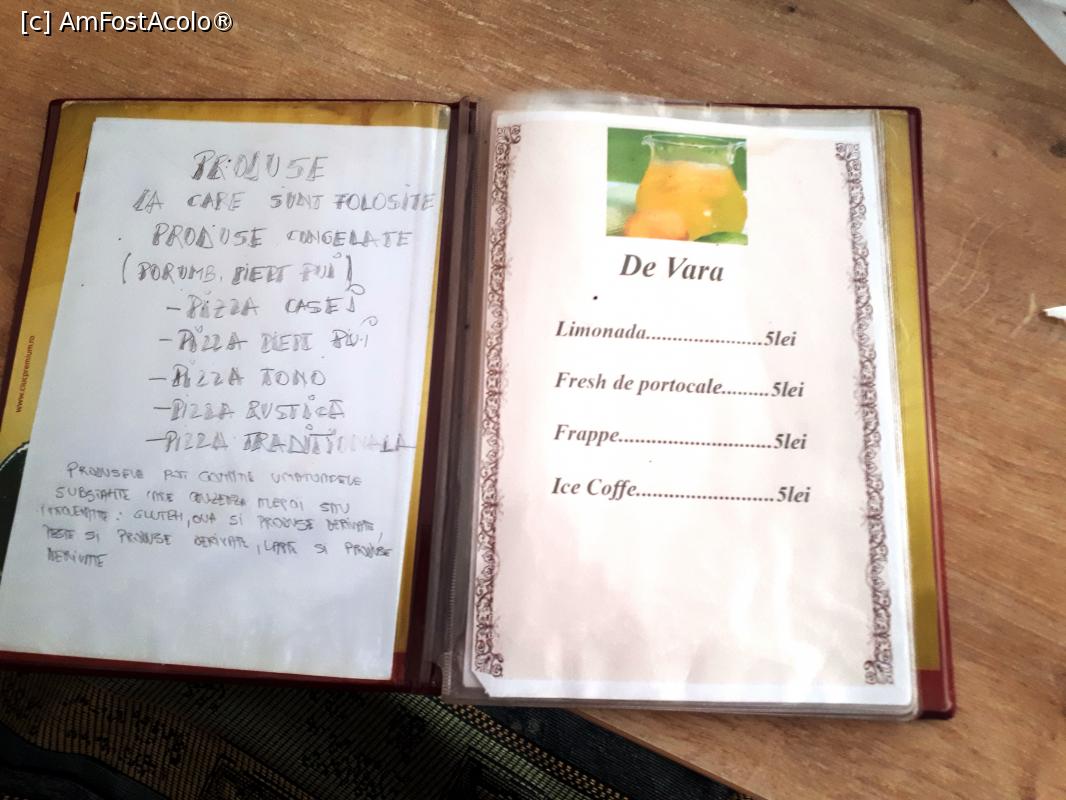 [c] AmFostAcolo®
PRODUSE
LA CARE SUNT FOLOSITE
PRODUSE CONGELATE
(PORUMB, PIEPT PUI)
- PIZZA CASEI
- PIZZA PIEPT PUI
- PIZZA TONO
- PIZZA RUSTICĂ
- PIZZA TRADITIONALA
PRODUSELE POT CONTINE URMATOARELE
SUBSTANTE CARE ALERGII SAU
: GLUTEN, OUA SI PRODUSE DERIVATE,
PESTE SI PRODUSE DERIVATE, LAPTE SI PRODUSE
DERIVATE
www.ciucpremium.ro
De Vara
Limonada......................5lei
Fresh de portocale.........5lei
Frappe.............................5lei
Ice Coffe..........................5lei